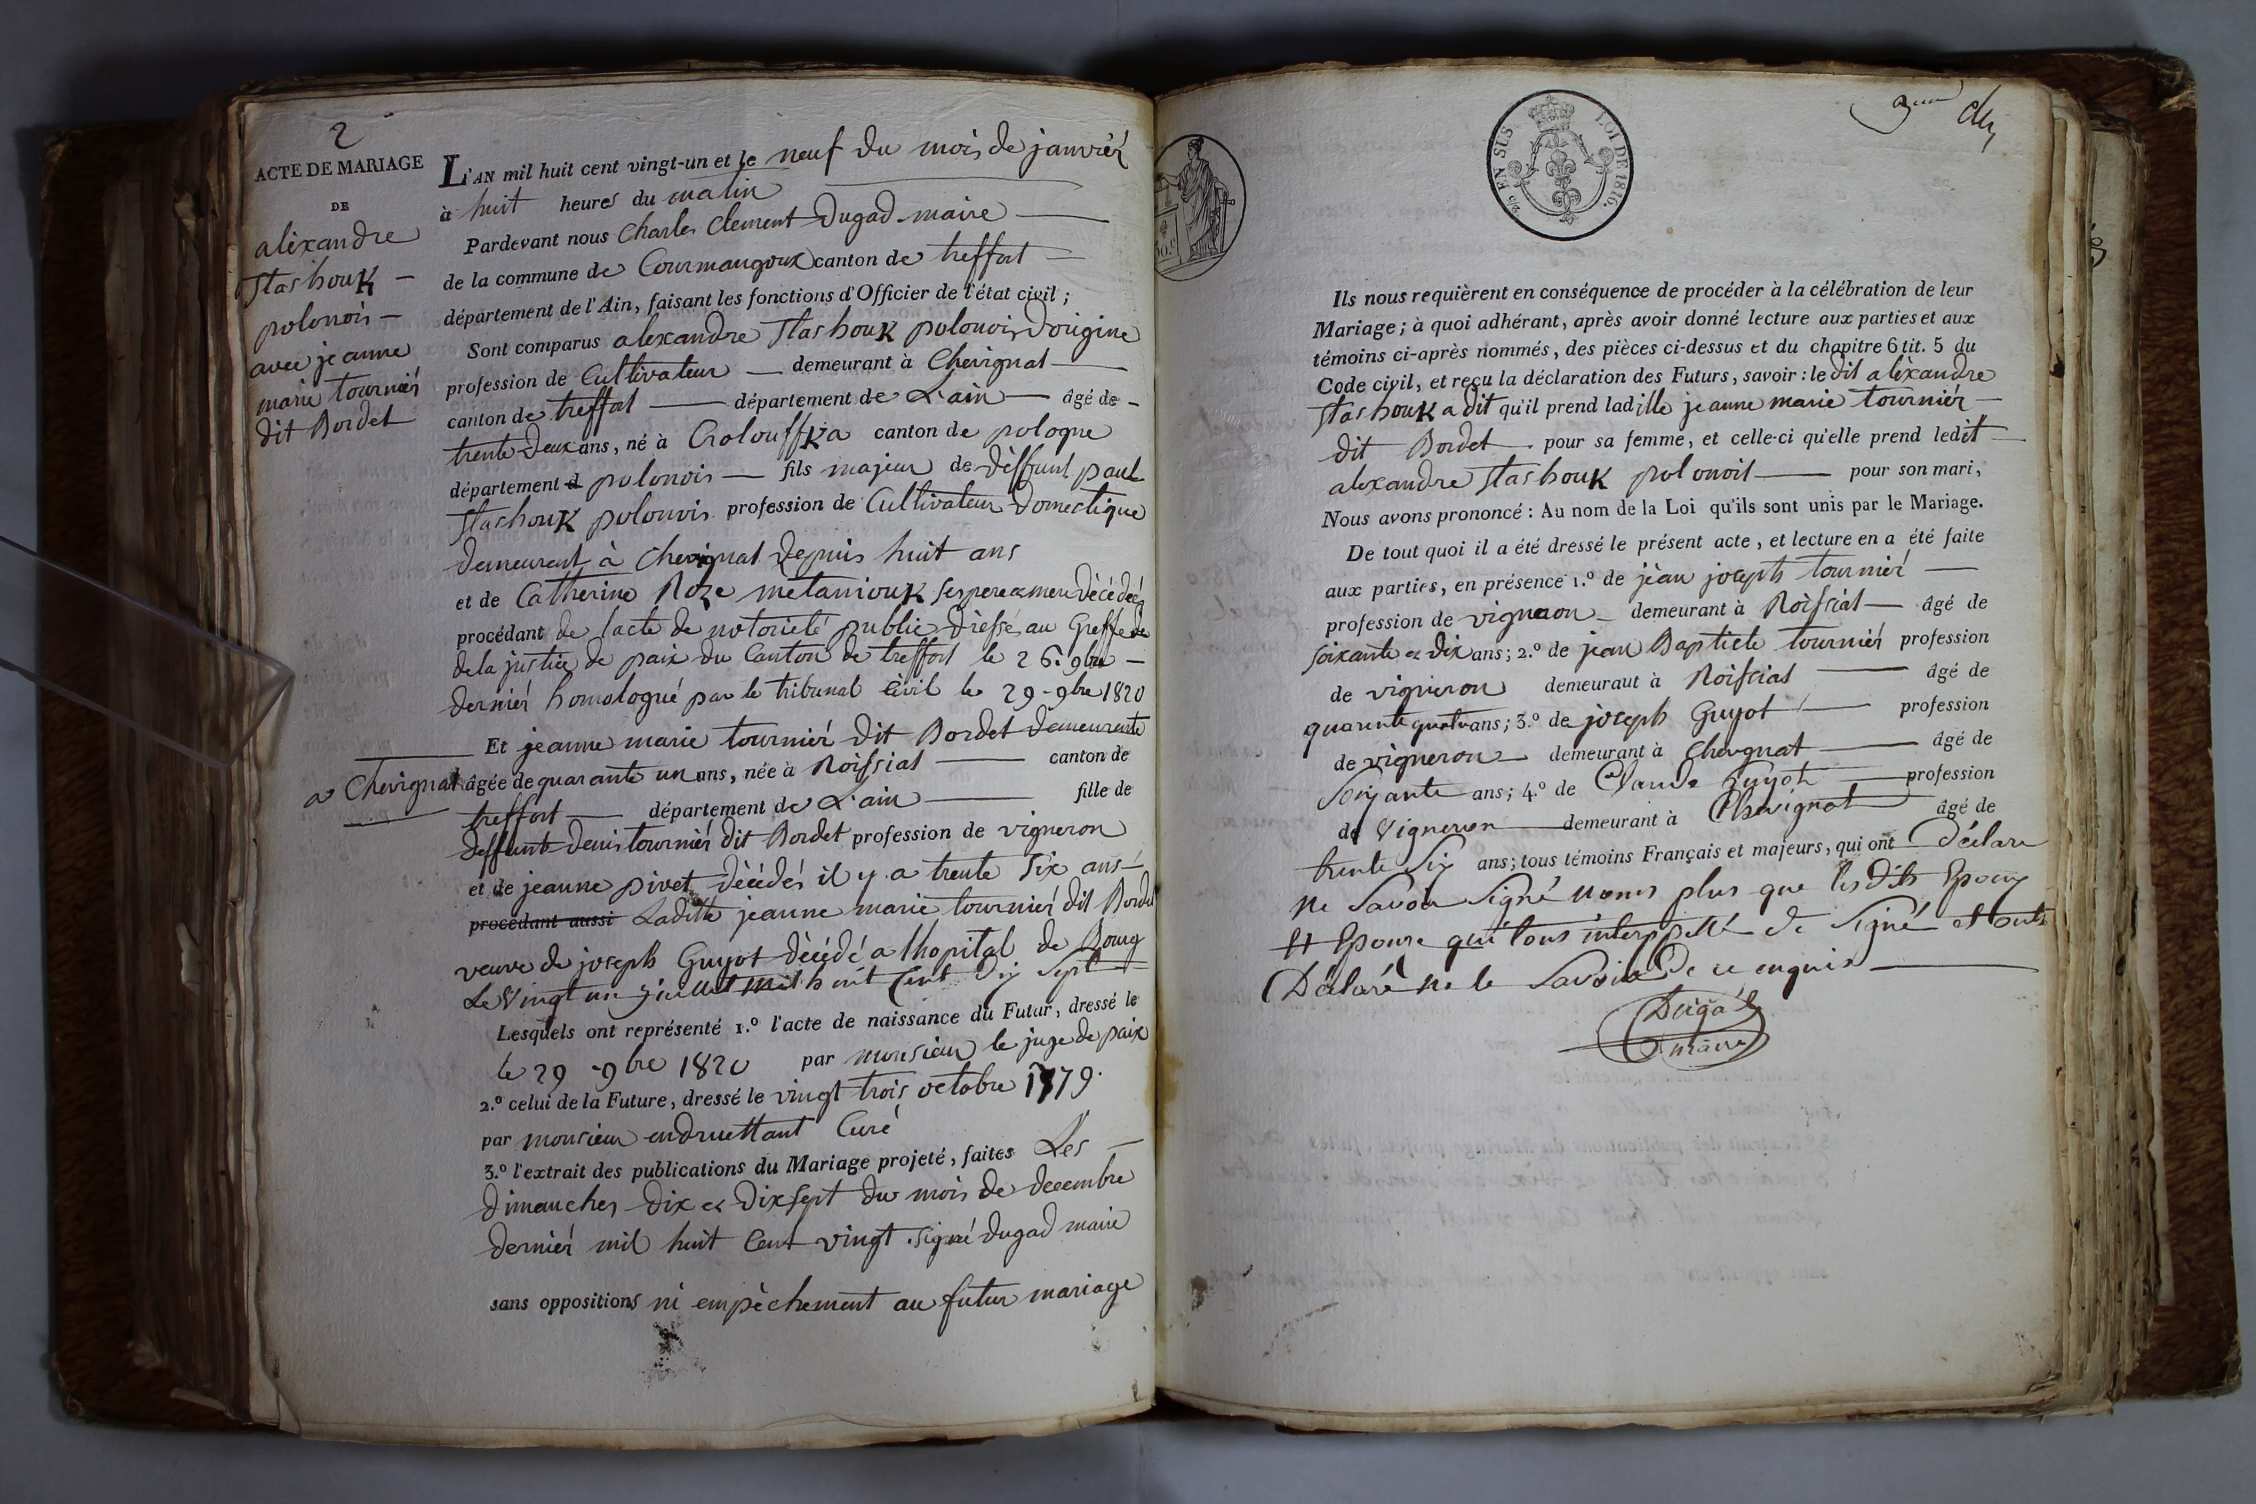 2
ACTE DE MARIAGE
DE
alèxandre
Stashouk —
polonois —
avec jeanne
marie tourniér
dit Bordet
L'AN mil huit cent vingt-un et le neuf du mois de janviér
à huit heures du matin
Pardevant nous Charles Clement Dugad maire
de la commune de Courmangoux canton de treffort
département de l'Ain, faisant les fonctions d'Officier de l'état civil ;
Sont comparus alexandre Stashouk polonois d'origine
profession de Cultivateur — demeurant à Chevignat
canton de treffort — département de L'ain — âgé de
trente deux ans, né à Crolouffka canton de pologne
département d polonois — fils majeur de déffunt paul
Stashouk polonois profession de Cultivateur Domestique
demeurant à chevignat depuis huit ans
et de Catherine Roze metaniouk ses pere et mere décédés
procédant de lacte de notorieté public dréssé au Greffe de
de la justice de paix du Canton de treffort le 26. 9bre —
derniér homologué par le tribunal Civil le 29 - 9bre 1820
Et jeanne marie tourniér dit Bordet demeurante
a Chevignat âgée de quarante un ans, née à Roissiat — canton de
treffort — département de L'ain — fille de
deffunt denis tourniér dit Bordet profession de vigneron
et de jeanne pivet décédés il y a trente Six ans —
procédant aussi Laditte jeanne marie tourniér dit Bordet
veuve de joseph Guyot décédé a lhopital de Bourg
Le Vingt un juillet mil huit Cent dix Sept
Lesquels ont représenté 1.º l'acte de naissance du Futur, dressé le
le 29 - 9bre 1820 par monsieur le juge de paix
2.º celui de la Future, dressé le vingt trois octobre 1779.
par monsieur endruettant Curé
3.º l'extrait des publications du Mariage projeté, faites Les —
dimanches dix et dix sept du mois de decembre
derniér mil huit Cent vingt. signé dugad maire
sans oppositions ni empèchement au futur mariage
25 EN SUS LOI DE 1816.
50.c
Ils nous requièrent en conséquence de procéder à la célébration de leur
Mariage ; à quoi adhérant, après avoir donné lecture aux parties et aux
témoins ci-après nommés, des pièces ci-dessus et du chapitre 6 tit. 5 du
Code civil, et reçu la déclaration des Futurs, savoir : le dit alèxandre
Stashouk a dit qu'il prend ladille jeanne marie tourniér —
dit Bordet — pour sa femme, et celle-ci qu'elle prend ledit —
alexandre Stashouk polonois — pour son mari,
Nous avons prononcé : Au nom de la Loi qu'ils sont unis par le Mariage.
De tout quoi il a été dressé le présent acte, et lecture en a été faite
aux parties, en présence 1.º de jèan joseph tourniér —
profession de vigneron — demeurant à Roissiat — âgé de
soixante et dix ans ; 2.º de jean Baptiste tourniér profession
de vigneron demeurant à Roissiat — âgé de
quarente quatre ans ; 3.º de joseph Guyot — profession
de vigneron — demeurant à Chevignat — âgé de
Soixante ans ; 4.º de Claude Guyot — profession
de Vigneron — demeurant à Chevignat âgé de
trente Six ans ; tous témoins Français et majeurs, qui ont Déclare
ne Savoir Signé nonns plus que les dits Epoux
et Epouse qui tous interppellé de Signé et onts
Déclaré ne le Savoir De ce enquis —
Dugad
maire